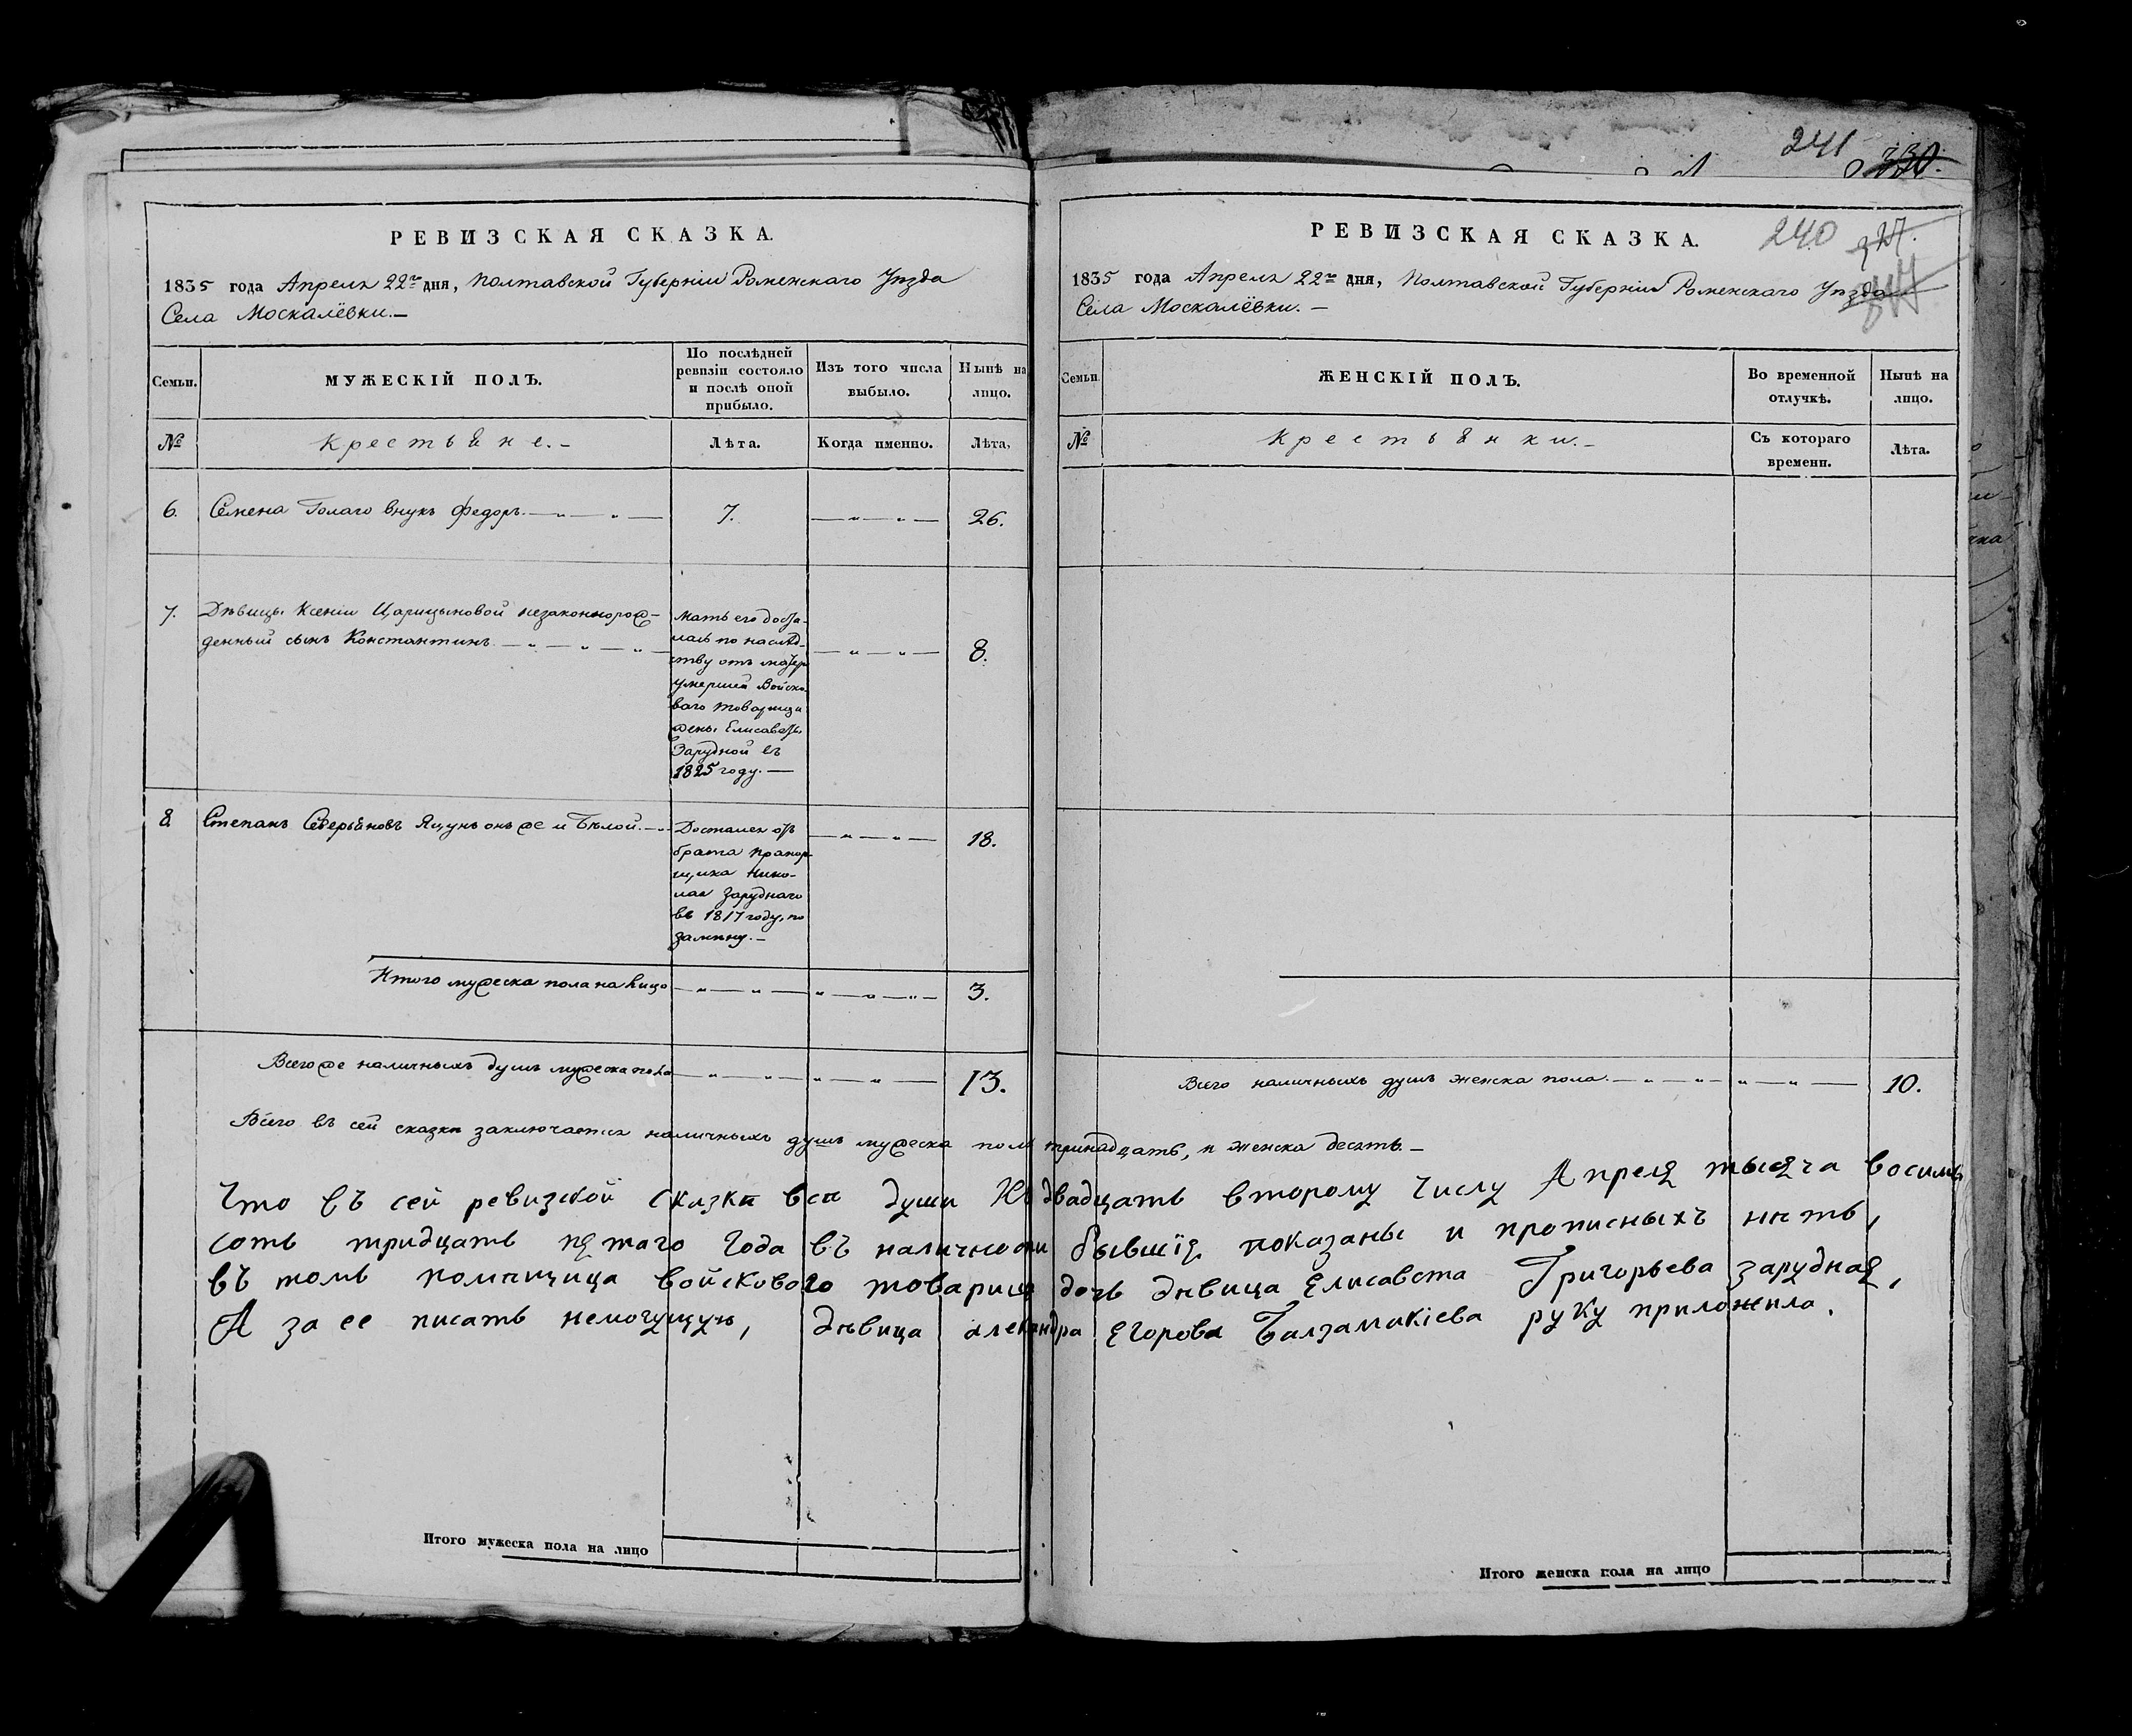 241
РЕВИЗСКАЯ СКАЗКА.
1835 года Апреля 22го дня, Полтавской Губерніи Роменскаго Уѣзда
Села Москалёвки.—
Семьи.
МУЖЕСКІЙ ПОЛЪ.
По послѣдней ревизіи состояло и послѣ оной прибыло.
Изъ того числа выбыло.
Нынѣ на лицо.
№
Крестьяне.—
Лѣта.
Когда именно.
Лѣта,
6. Семена Голаго внукъ Федоръ. 7. 26.
7. Дѣвицы Ксеніи Царицыновой незаконнорож-
денный сынъ Константинъ 8.
Мать его доста-
лась по наслѣд-
ству отъ матери
умершей Войско-
ваго товарища
жены Елисаветы
Зарудной въ
1825 году.—
8 Степанъ Северьяновъ Яцунъ онъ же и Бѣлой. 18.
Достался отъ
брата прапор-
щика Нико-
лая Заруднаго
въ 1817 году, по
замѣну.—
Итого мужеска пола на лицо 3.
Всего же наличныхъ душъ мужеска пола 13.
РЕВИЗСКАЯ СКАЗКА.
240
327.
1835 года Апреля 22го дня, Полтавской Губерніи Роменскаго Уѣзда
Села Москалёвки.—
Семьи.
ЖЕНСКІЙ ПОЛЪ.
Во временной отлучкѣ.
Нынѣ на лицо.
№
Крестьянки.—
Съ котораго времени.
Лѣта.
Всего наличныхъ душъ женска пола. 10.
Всего въ сей сказкѣ заключается наличныхъ душъ мужеска пола тринадцать, и женска десять.—
Что въ сей ревизской сказкѣ всѣ души къ двадцать второму числу Апреля тысяча восимь
соть тридцать пятаго года въ наличности бывшія показаны и прописныхъ нѣть,
въ томъ помѣщица войсковаго товарища дочь дѣвица Елисавета Григорьева зарудная,
А за ее писать немогущую, дѣвица александра Егорова Балзаманіева руку приложила.
Итого мужеска пола на лицо
Итого женска пола на лицо